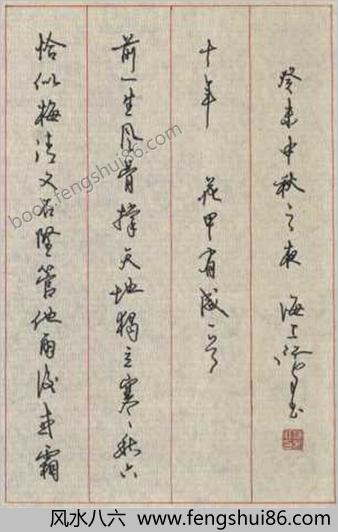 恰似梅清又石坚管他雨后或霜
前一生风骨撑天地独立寒秋六
十年 花甲有感一首
癸未中秋之夜 海上 书
book.fengshui86.com
风水八六 www.fengshui86.com